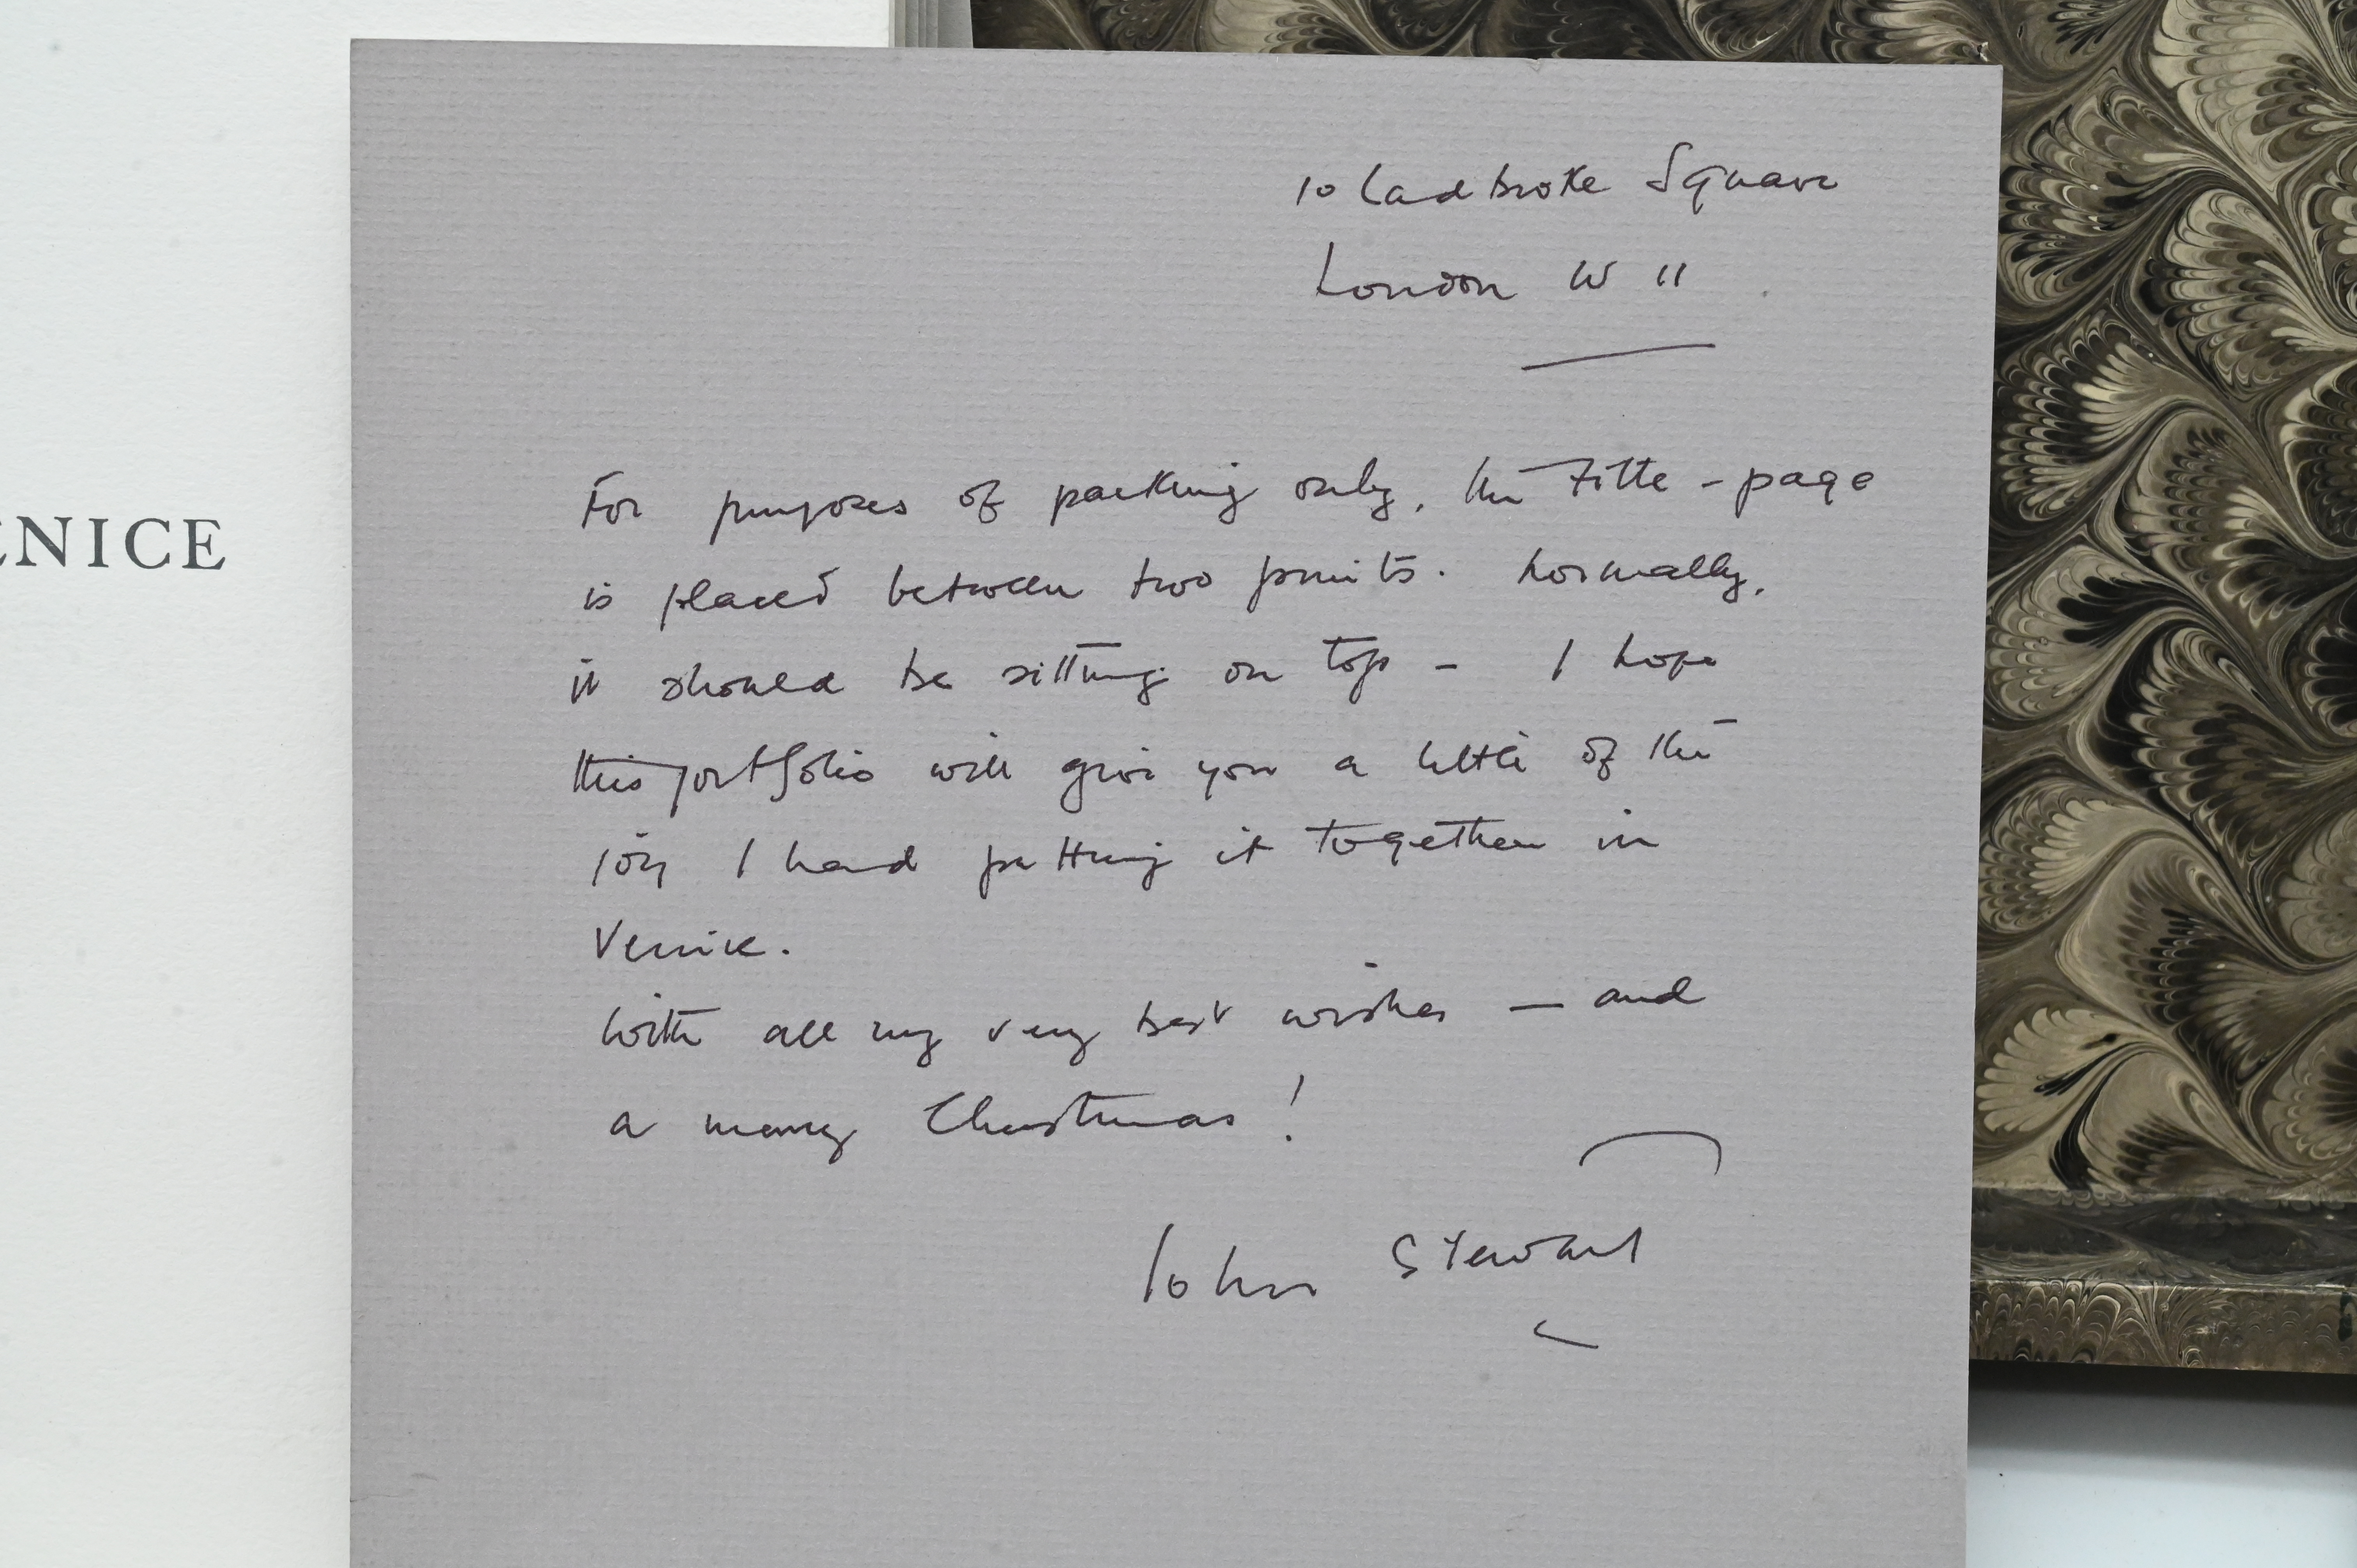 10 Ladbroke Square
London W 11
For purposes of packing only, the Title-page
is placed between two prints. Normally,
it should be sitting on top - I hope
this portfolio will give you a little of the
joy I had putting it together in
Venice.
With all my very best wishes — and
a merry Christmas!
John Stewart
ENICE